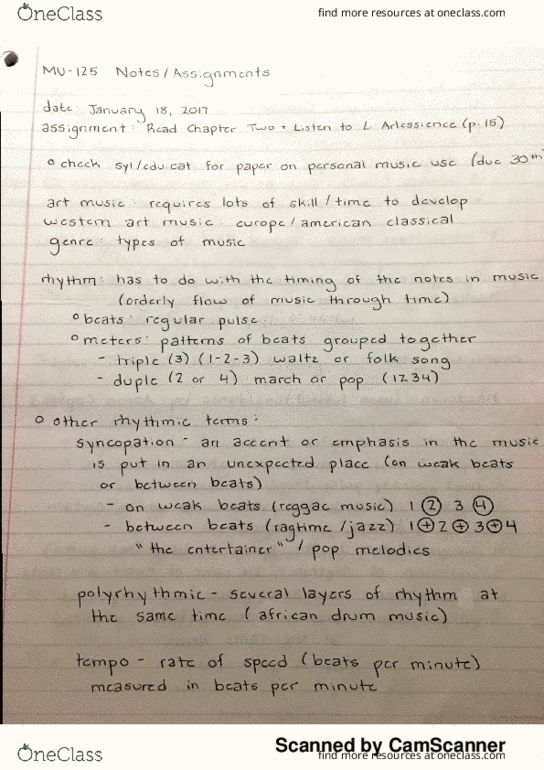 OneClass
find more resources at oneclass.com
MU-125 Notes/Assignments
date: January 18, 2017
assignment: Read Chapter Two + Listen to L Arlessience (p.15)
o check syl/edu cat for paper on personal music use (due 30th
art music: requires lots of skill/time to develop
western art music: europe/american classical
genre: types of music
rhythm: has to do with the timing of the notes in music
(orderly flow of music through time)
o beats: regular pulse
o meters: patterns of beats grouped together
- triple (3) (1-2-3) waltz or folk song
- duple (2 or 4) march or pop (1234)
o other rhythmic terms:
syncopation - an accent or emphasis in the music
is put in an unexpected place (on weak beats
or between beats)
- on weak beats (reggae music) 1 ② 3 ④
- between beats (ragtime/jazz) 1⊕2⊕3⊕4
"the entertainer" / pop melodies
polyrhythmic - several layers of rhythm at
the same time (african drum music)
tempo - rate of speed (beats per minute)
measured in beats per minute
Scanned by CamScanner
OneClass
find more resources at oneclass.com